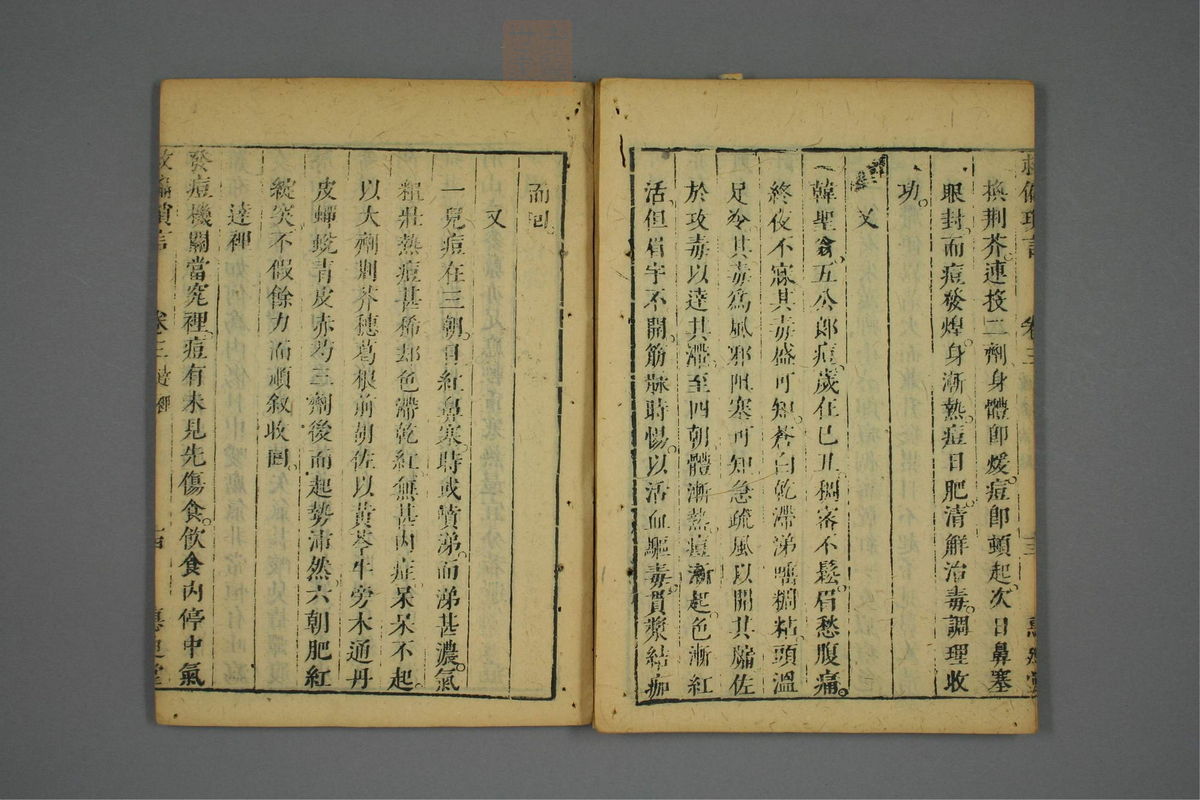 救偏瑣言 卷三
換荆芥連投二劑身體卽煖痘卽頭起次日鼻塞
眼封而痘發焊身漸熱痘日肥淸解治毒調理收
功
又
韓聖翁五公郎痘歲在己丑稠密不鬆眉愁腹痛
終夜不寐其毒盛可知蒼白乾滯涕唾稠粘頭溫
足冷其毒爲風邪阻塞可知急疏風以開其牖佐
於攻毒以達其滯至四朝體漸熱痘漸起色漸紅
活但眉宇不開筋脉時惕以活血驅毒貫漿結痂
而回
又
一兒痘在三朝目紅鼻塞時或噴涕而涕甚濃氣
粗壯熱痘甚稀却色滯乾紅無甚內症呆呆不起
以大劑荆芥穗葛根前胡佐以黃芩牛旁木通丹
皮蟬蛻靑皮赤芍三劑後而起勢沛然六朝肥紅
綻突不假餘力滿頑叙收回
達裡
發痘機關當究裡痘有未見先傷食飲食內停中氣
救偏瑣言 卷三 達裡 十四 惠迪堂